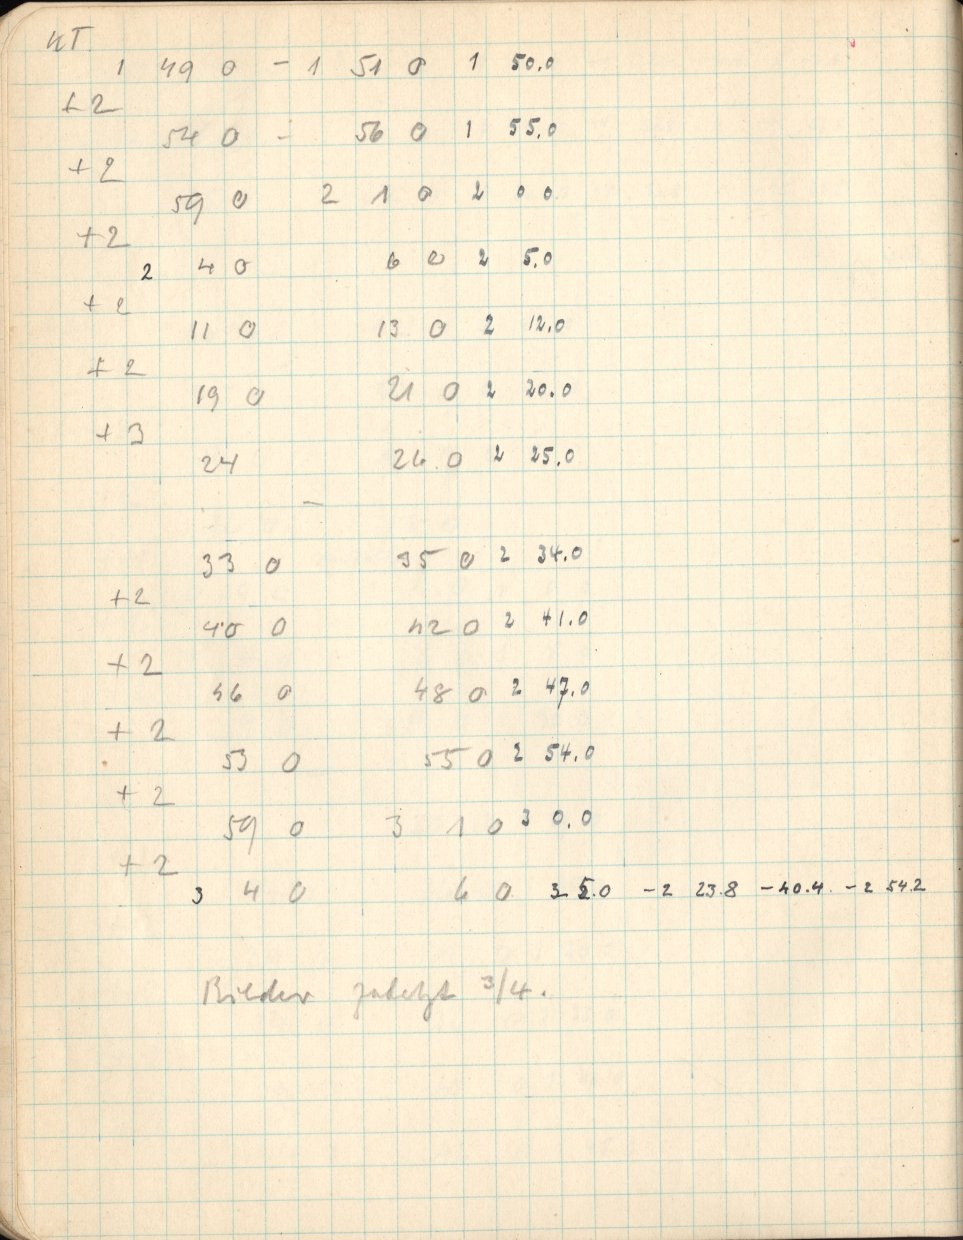 KT.
1 49 0 - 1 51 0 1 50.0
+2
54 0 - 56 0 1 55.0
+2
59 0 2 1 0 2 0 0
+2
2 4 0 6 0 2 5.0
+2
11 0 13 0 2 12.0
+2
19 0 21 0 2 20.0
+3
24 26 0 2 25.0
-
33 0 35 0 2 34.0
+2
40 0 42 0 2 41.0
+2
46 0 48 0 2 47.0
+2
53 0 55 0 2 54.0
+2
59 0 3 1 0 3 0.0
+2
3 4 0 6 0 3 5.0 -2 23.8 -40.4 -2 54.2
Bilder zuletzt 3/4.